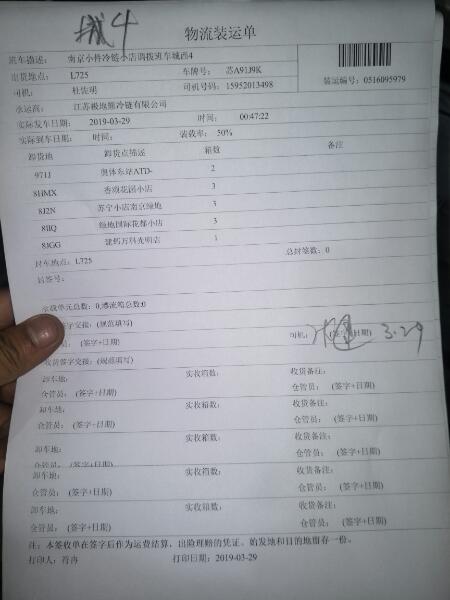 城4
物流装运单
班车描述： 南京小件冷链小店调拨班车城西4
出货地点： L725 车牌号： 苏A91J9K 装运编号：0516095979
司机： 杜先明 司机号码：15952013498
承运商： 江苏极地熊冷链有限公司
实际发车日期： 2019-03-29 时间： 00:47:22
实际到车日期： 时间： 装载率： 50%
卸货地 卸货点描述 箱数 备注
971J 奥体东站ATD- 2
8HMX 香颂花园小店 3
8J2N 苏宁小店南京绿地 3
8IIQ 绿地国际花都小店 3
8JGG 建邺万科光明店 1
封车地点：L725 总封签数：0
封签号：
承载单元总数：0,漂流箱总数:0
签字交接：(规范填写)
(签字+日期) 司机： (签字+日期) 3.29
收货签字交接：(规范填写)
卸车地： 实收箱数： 收货备注：
仓管员： (签字+日期) 仓管员： (签字+日期)
卸车地： 实收箱数： 收货备注：
仓管员： (签字+日期) 仓管员： (签字+日期)
卸车地： 实收箱数： 收货备注：
仓管员： (签字+日期) 仓管员： (签字+日期)
卸车地： 实收箱数： 收货备注：
仓管员： (签字+日期) 仓管员： (签字+日期)
卸车地： 实收箱数： 收货备注：
仓管员： (签字+日期) 仓管员： (签字+日期)
注：本签收单在签字后作为运费结算，出险理赔的凭证。始发地和目的地留存一份。
打印人：符冉 打印日期：2019-03-29